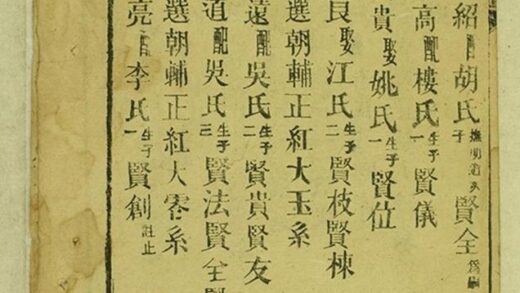 紹配胡氏子撫明道次賢全爲嗣
高配樓氏生子一賢儀
貴娶姚氏生子一賢位
良娶江氏生子二賢枝賢棟
選朝輔正紅大玉系
遠配吳氏生子二賢貴賢友
道配吳氏生子三賢法賢全賢
選朝輔正紅大零系
亮配李氏生子一賢創註止